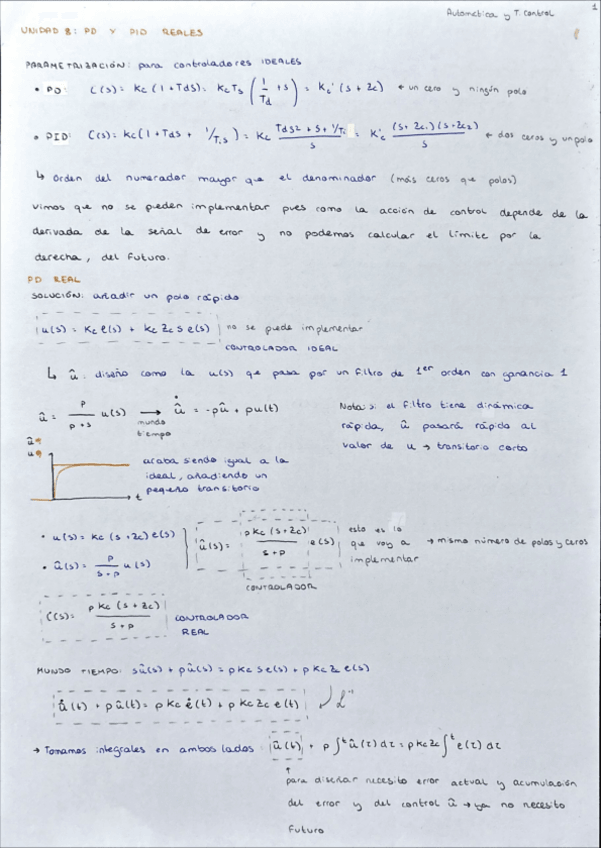 Automática y T. Control
1
UNIDAD 8: PD Y PID REALES
PARAMETRIZACIÓN: para controladores IDEALES
• PD: C(s) = Kc (1 + Tds) = Kc Ts (1/Td + s) = Kc' (s + Zc) ← un cero y ningún polo
• PID: C(s) = Kc (1 + Tds + 1/Tis) = Kc (Tds2 + s + 1/Ti)/s = K'c (s + Zc1)(s + Zc2)/s ← dos ceros y un polo
↳ Orden del numerador mayor que el denominador (más ceros que polos)
Vimos que no se pueden implementar pues como la acción de control depende de la
derivada de la señal de error y no podemos calcular el límite por la
derecha, del futuro.
PD REAL
SOLUCIÓN: añadir un polo rápido
u(s) = Kc e(s) + Kc Zc s e(s) no se puede implementar
CONTROLADOR IDEAL
↳ û: diseño como la u(s) que pasa por un filtro de 1er orden con ganancia 1
û = p/(p + s) u(s) → û̇ = -pû + pu(t)
mundo
tiempo
Nota: si el filtro tiene dinámica
rápida, û pasará rápido al
valor de u → transitorio corto
û
u
t
acaba siendo igual a la
ideal, añadiendo un
pequeño transitorio
• u(s) = Kc (s + Zc) e(s)
• û(s) = p/(s + p) u(s)
û(s) = p Kc (s + Zc)/(s + p) e(s)
esto es lo
que voy a
implementar
→ mismo número de polos y ceros
CONTROLADOR
C(s) = p Kc (s + Zc)/(s + p) CONTROLADOR
REAL
MUNDO TIEMPO: sû(s) + pû(s) = p Kc s e(s) + p Kc Zc e(s)
û̇(t) + pû(t) = p Kc ė(t) + p Kc Zc e(t) L⁻¹
→ Tomamos integrales en ambos lados: û(t) + p ∫t û(τ) dτ = p Kc Zc ∫t e(τ) dτ
↑
para diseñar necesito error actual y acumulación
del error y del control û → ya no necesito
futuro